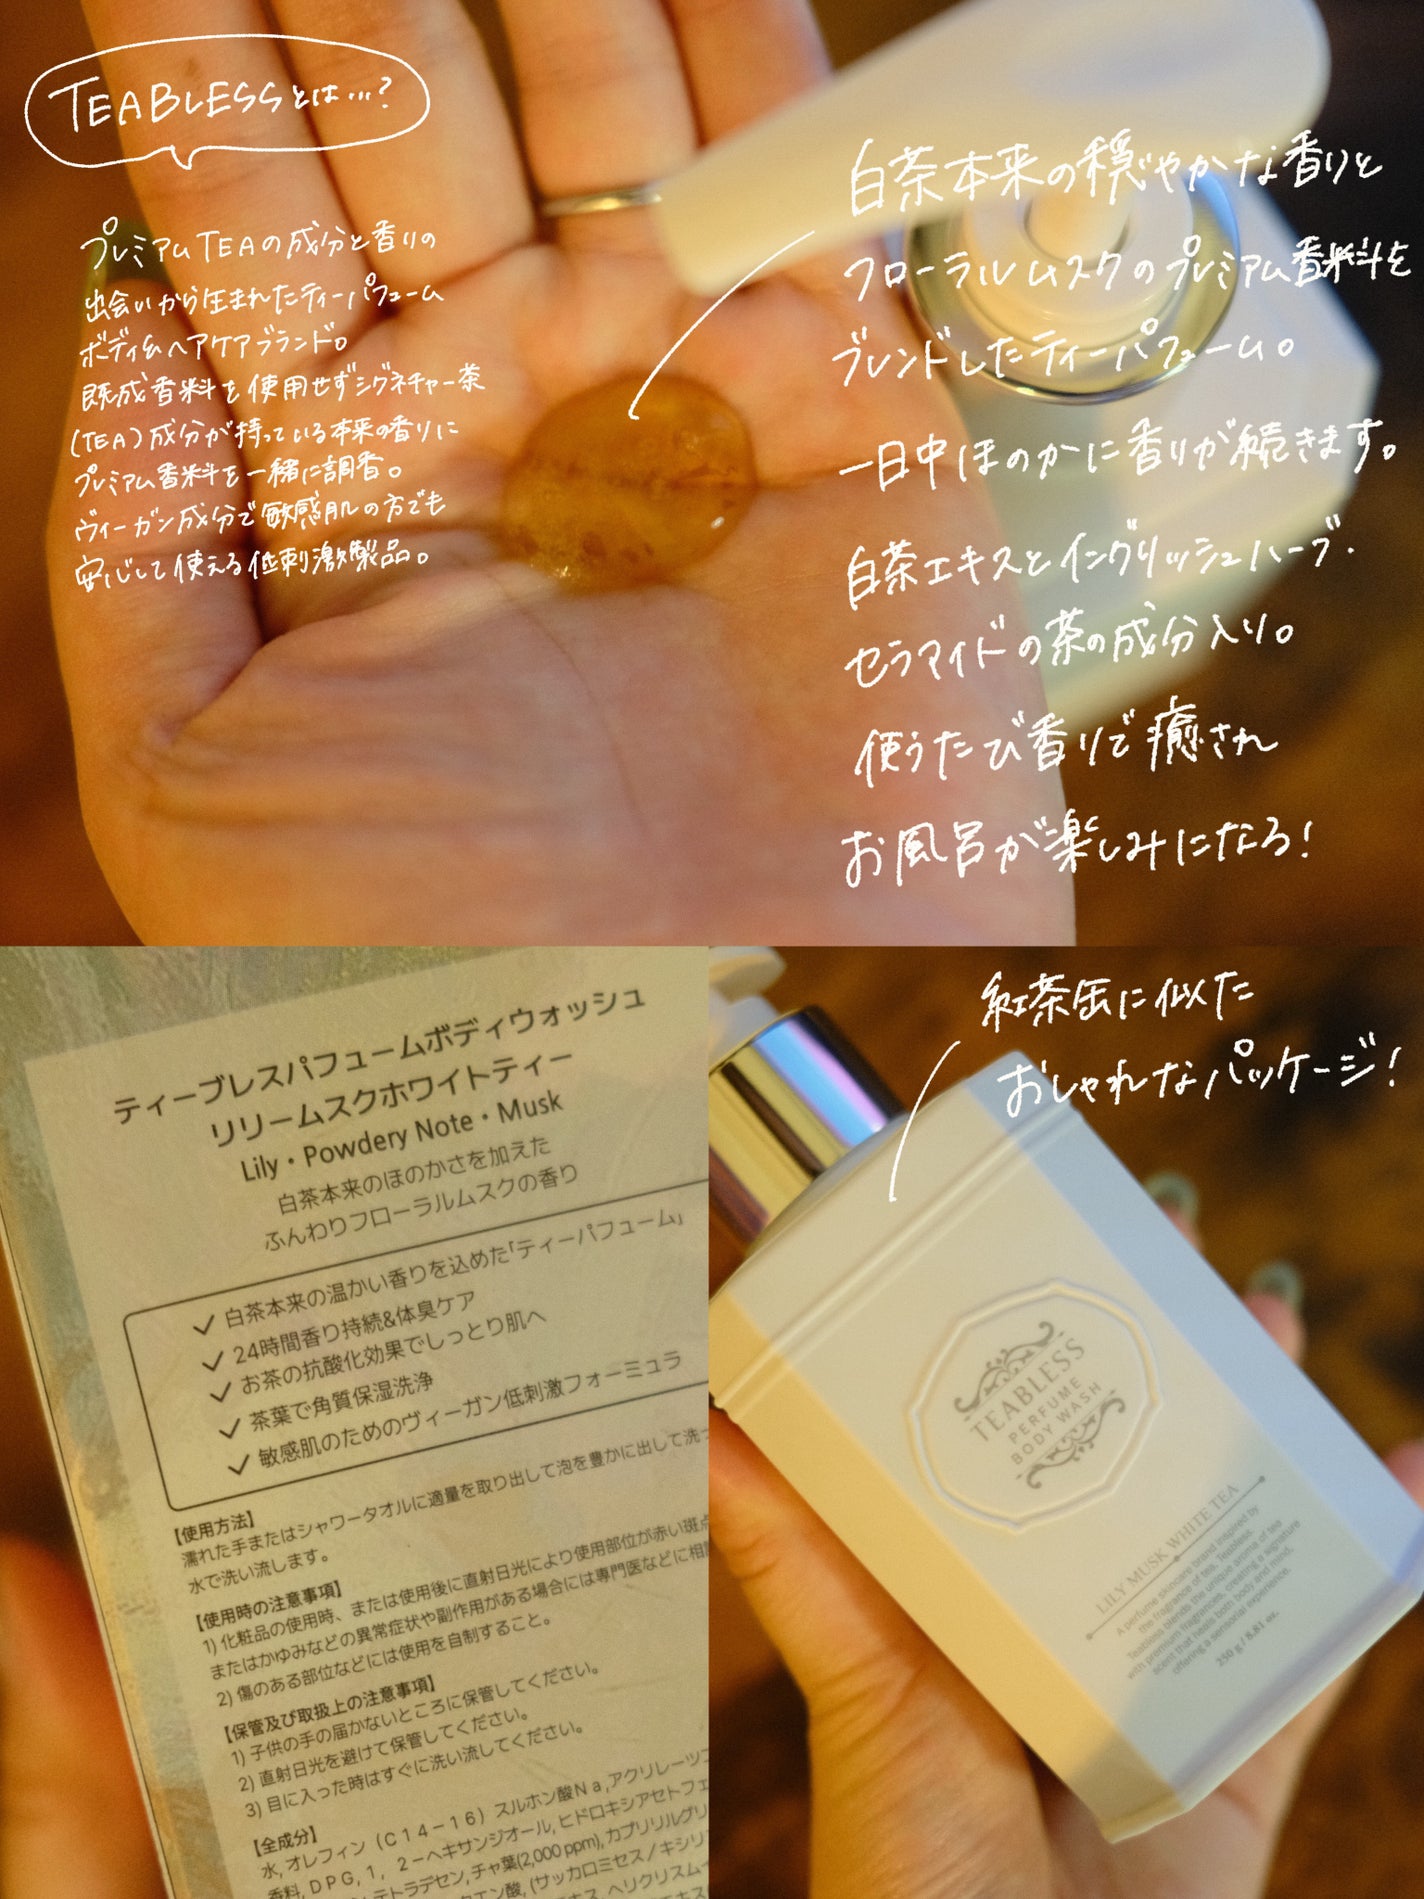 TEABLESSとは…?
プレミアムTEAの成分と香りの
出会いから生まれたティーパフューム
ボディ&ヘアケアブランド。
既成香料を使用せずシグネチャー茶
(TEA)成分が持っている本来の香りに
プレミアム香料を一緒に調香。
ヴィーガン成分で敏感肌の方でも
安心して使える低刺激製品。
白茶本来の穏やかな香りと
フローラルムスクのプレミアム香料を
ブレンドしたティーパフューム。
一日中ほのかに香りが続きます。
白茶エキスとイングリッシュハーブ・
セラマイドの茶の成分入り。
使うたび香りで癒され
お風呂が楽しみになる!
ティーブレスパフュームボディウォッシュ
リリームスクホワイトティー
Lily・Powdery Note・Musk
白茶本来のほのかさを加えた
ふんわりフローラルムスクの香り
✓ 白茶本来の温かい香りを込めた「ティーパフューム」
✓ 24時間香り持続&体臭ケア
✓ お茶の抗酸化効果でしっとり肌へ
✓ 茶葉で角質保湿洗浄
✓ 敏感肌のためのヴィーガン低刺激フォーミュラ
【使用方法】
濡れた手またはシャワータオルに適量を取り出して泡を豊かに出して洗っ
水で洗い流します。
【使用時の注意事項】
1) 化粧品の使用時、または使用後に直射日光により使用部位が赤い斑点
またはかゆみなどの異常症状や副作用がある場合には専門医などに相談
2) 傷のある部位などには使用を自制すること。
【保管及び取扱上の注意事項】
1) 子供の手の届かないところに保管してください。
2) 直射日光を避けて保管してください。
3) 目に入った時はすぐに洗い流してください。
【全成分】
水, オレフィン(C14-16)スルホン酸Na, アクリレーツコ
香料, DPG, 1, 2-ヘキサンジオール, ヒドロキシアセトフェ
テトラデセン, チャ葉(2,000 ppm), カプリリルグリ
クエン酸, (サッカロミセス/キシリ
ヘリクリスム
紅茶缶に似た
おしゃれなパッケージ!
TEABLESS
PERFUME
BODY WASH
LILY MUSK WHITE TEA
A perfume skincare brand inspired by
the fragrance of tea, Teabless.
Teabless blends the unique aroma of tea
with premium fragrances, creating a signature
scent that heals both body and mind,
offering a sensorial experience.
250 g / 8.81 oz.